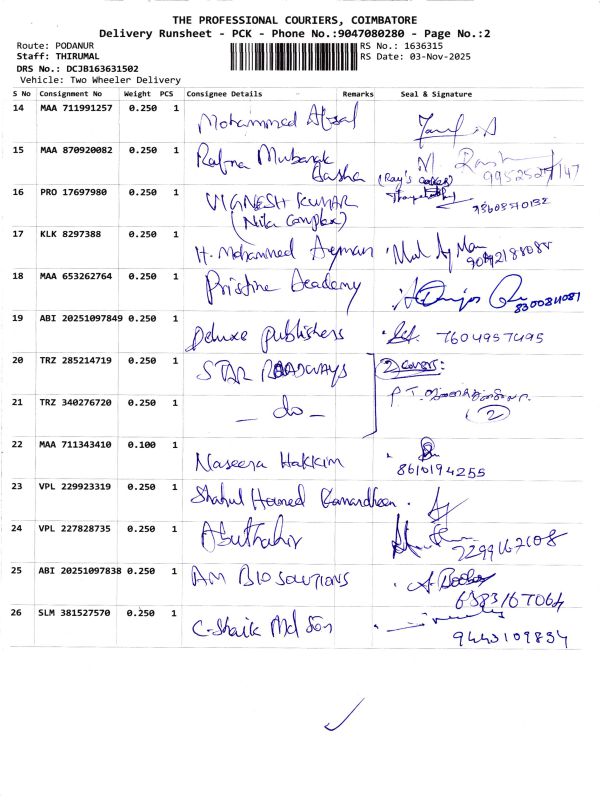 THE PROFESSIONAL COURIERS, COIMBATORE
Delivery Runsheet - PCK - Phone No.:9047080280 - Page No.:2
Route: PODANUR
Staff: THIRUMAL
DRS No.: DCJB163631502
Vehicle: Two Wheeler Delivery
RS No.: 1636315
RS Date: 03-Nov-2025
S No Consignment No Weight PCS Consignee Details Remarks Seal & Signature
14 MAA 711991257 0.250 1 Mohammed Afzal
15 MAA 870920082 0.250 1 Rafna Mubarak Basha
16 PRO 17697980 0.250 1 VIGNESH KUMAR
(Nila Complex)
17 KLK 8297388 0.250 1 H. Mohammed Ayman
18 MAA 653262764 0.250 1 Pristine Academy 8300811081
19 ABI 20251097849 0.250 1 Deluxe publishers 7604957495
20 TRZ 285214719 0.250 1 STAR ROADWAYS (2) covers:
21 TRZ 340276720 0.250 1 — do — P.T.
(2)
22 MAA 711343410 0.100 1 Naseera Hakkim 8610194255
23 VPL 229923319 0.250 1 Shahul Hameed Kamardheen.
24 VPL 227828735 0.250 1 Abuthahir 7299167108
25 ABI 20251097838 0.250 1 AM BIO SOLUTIONS 6383167064
26 SLM 381527570 0.250 1 C-Shaik Md Son 9443109834